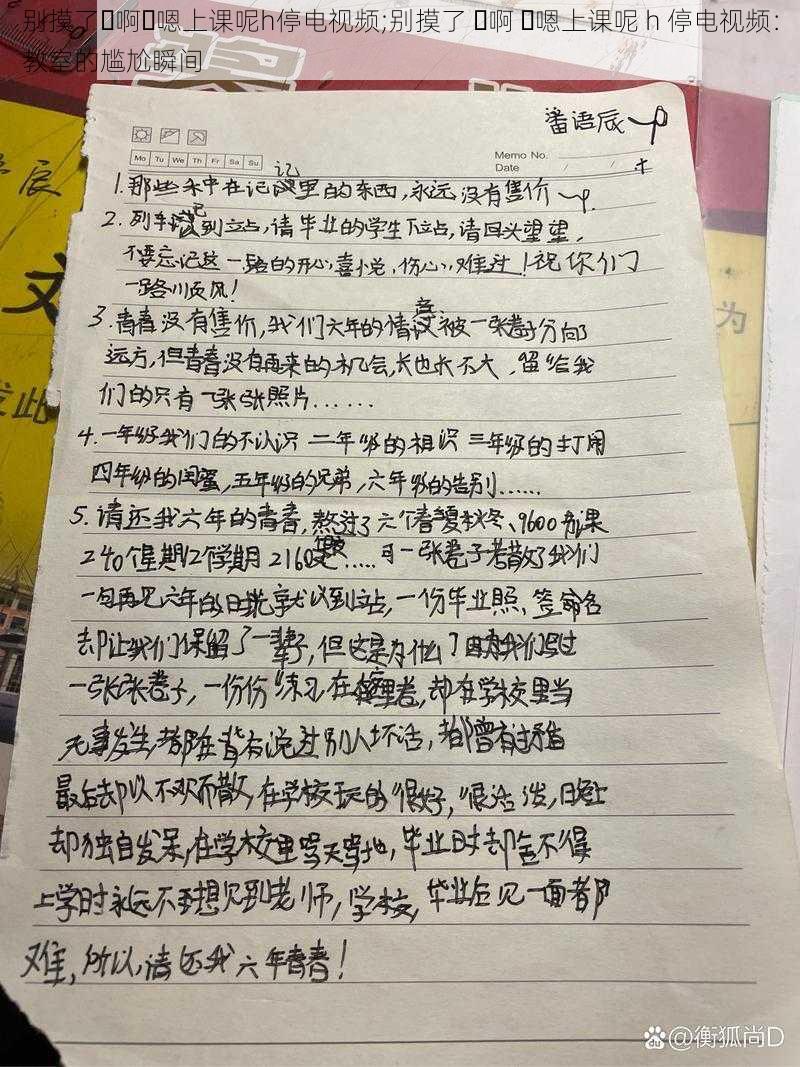 别摸了▯啊▯嗯上课呢h停电视频;别摸了 ▯啊 ▯嗯上课呢 h 停电视频：
教室的尴尬瞬间
番语辰
Mo Tu We Th Fr Sa Su
Memo No.
Date / /
记
1.那些未中在记里的东西,永远没有售价
2.列车到立占,请毕业的学生下立占,请回头望望,
不要忘记这一路的开心,喜悦,伤心,难过!祝你们
一路川页风!
3.青春没有售价,我们六年的情被一张卷子分向
远方,但青春没有再来的机会,长也长不大,留给我
们的只有一张张照片……
4.一年级我们的不认识 二年级的相识 三年级的打闹
四年级的闺蜜,五年级的兄弟,六年级的告别……
5.请还我六年的青春,熬过了六个春夏秋冬、9600节课
240个星期12个学期 2160……可一张卷子若散了我们
一句再见六年的时光就以到立占,一份毕业照,签命名
却让我们保留了一辈子,但这是为什么?因为我们写过
一张张卷子,一份份练习,在里卷,却在学校里当
无事发生,都在背后说过别人坏话,都曾有过矛盾
最后却以不欢而散,在学校玩的很好,很活泼,晚上
却独自发呆,在学校里骂天骂地,毕业时却舍不得
上学时永远不想见到老师,学校,毕业后见一面都
难,所以,请还我六年青春!
为
@衡狐尚D